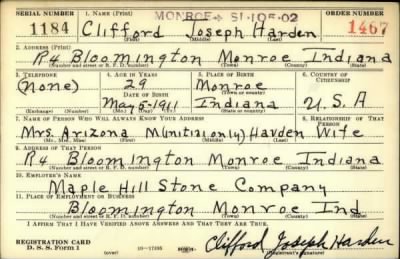 SERIAL NUMBER 1. NAME (Print) MONROE + S1-105-02 ORDER NUMBER
1184 Clifford Joseph Harden 1467
(First) (Middle) (Last)
2. ADDRESS (Print)
R4 Bloomington Monroe Indiana
(Number and street or R. F. D. number) (Town) (County) (State)
3. TELEPHONE 4. AGE IN YEARS 5. PLACE OF BIRTH 6. COUNTRY OF CITIZENSHIP
(None) 29 Monroe
DATE OF BIRTH (Town or county)
May 5-1911 Indiana U.S.A
(Exchange) (Number) (Mo.) (Day) (Yr.) (State or country)
7. NAME OF PERSON WHO WILL ALWAYS KNOW YOUR ADDRESS 8. RELATIONSHIP OF THAT PERSON
Mrs. Arizona M(initial only) Harden Wife
(Mr., Mrs., Miss) (First) (Middle) (Last)
9. ADDRESS OF THAT PERSON
R4 Bloomington Monroe Indiana
(Number and street or R. F. D. number) (Town) (County) (State)
10. EMPLOYER'S NAME
Maple Hill Stone Company
11. PLACE OF EMPLOYMENT OR BUSINESS
Bloomington Monroe Ind
(Number and street or R. F. D. number) (Town) (County) (State)
I AFFIRM THAT I HAVE VERIFIED ABOVE ANSWERS AND THAT THEY ARE TRUE.
REGISTRATION CARD
D. S. S. Form 1 (over) Clifford Joseph Harden
(Registrant's signature)